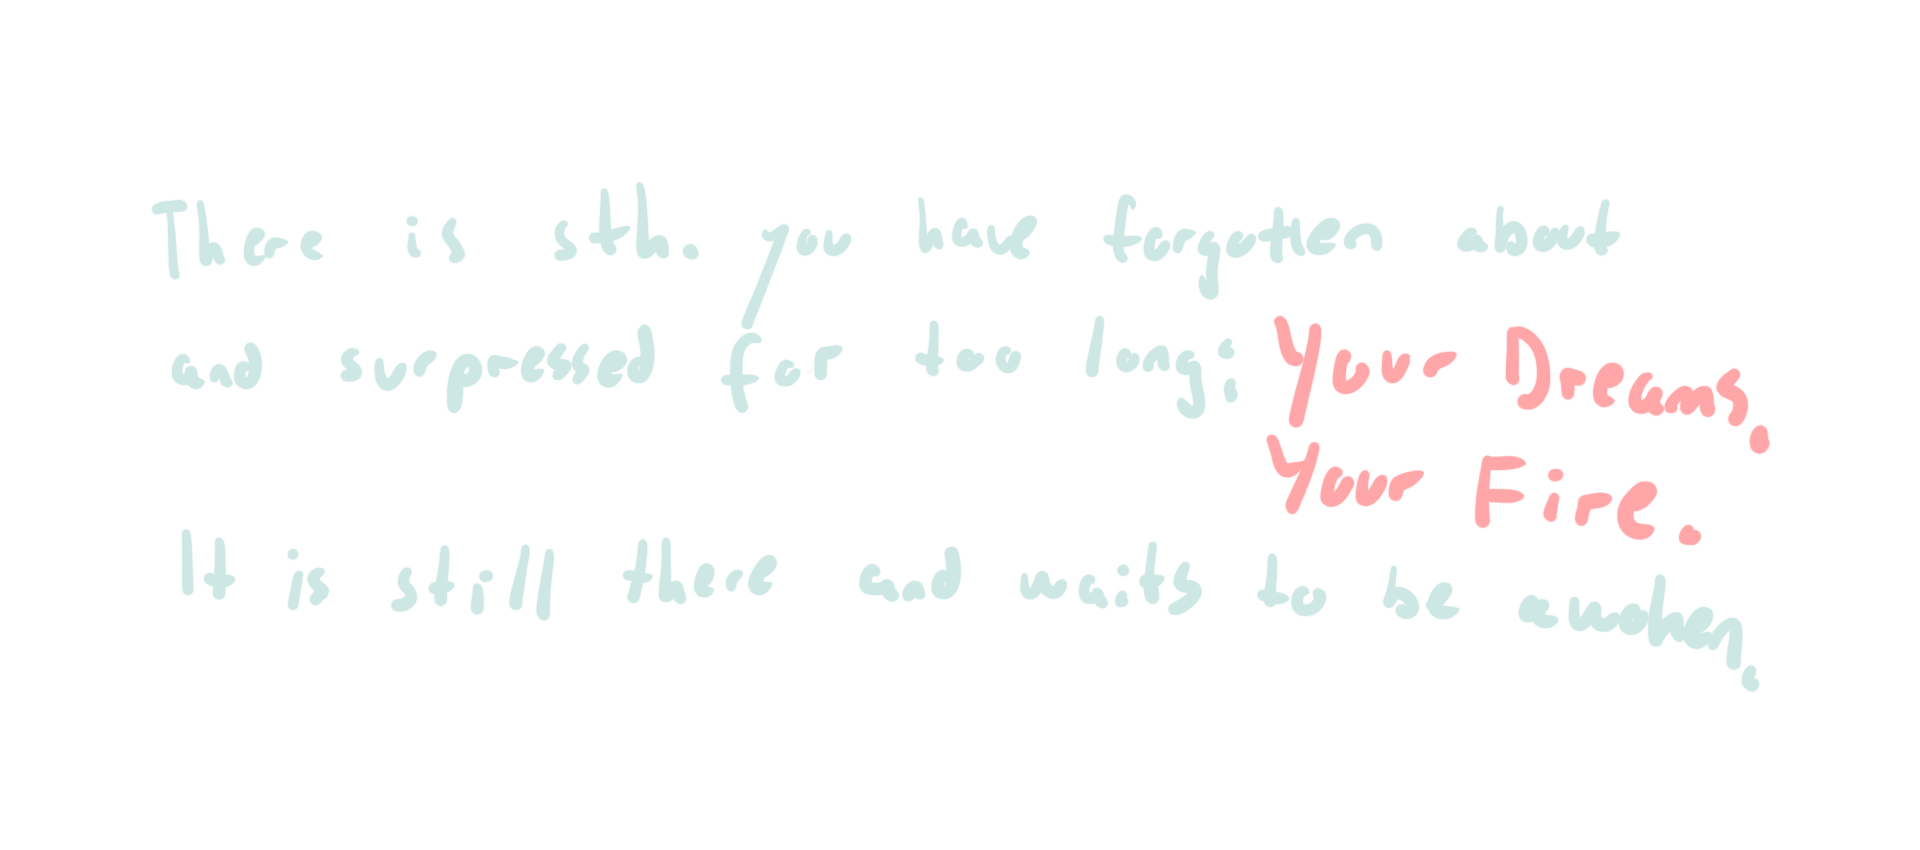 There is sth. you have forgotten about
and surpressed for too long: Your Dreams.
Your Fire.
It is still there and waits to be awoken.